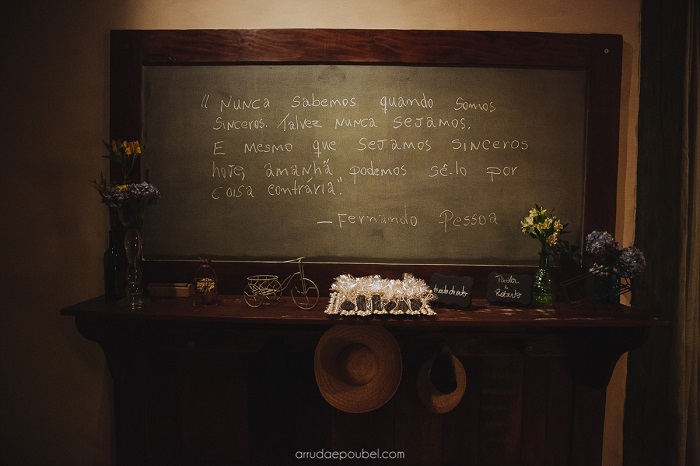 “ Nunca sabemos quando somos
sinceros. Talvez nunca sejamos.
E mesmo que sejamos sinceros
hoje, amanhã podemos sê-lo por
coisa contrária”.
— Fernando Pessoa
Roberto
arrudaepoubel.com